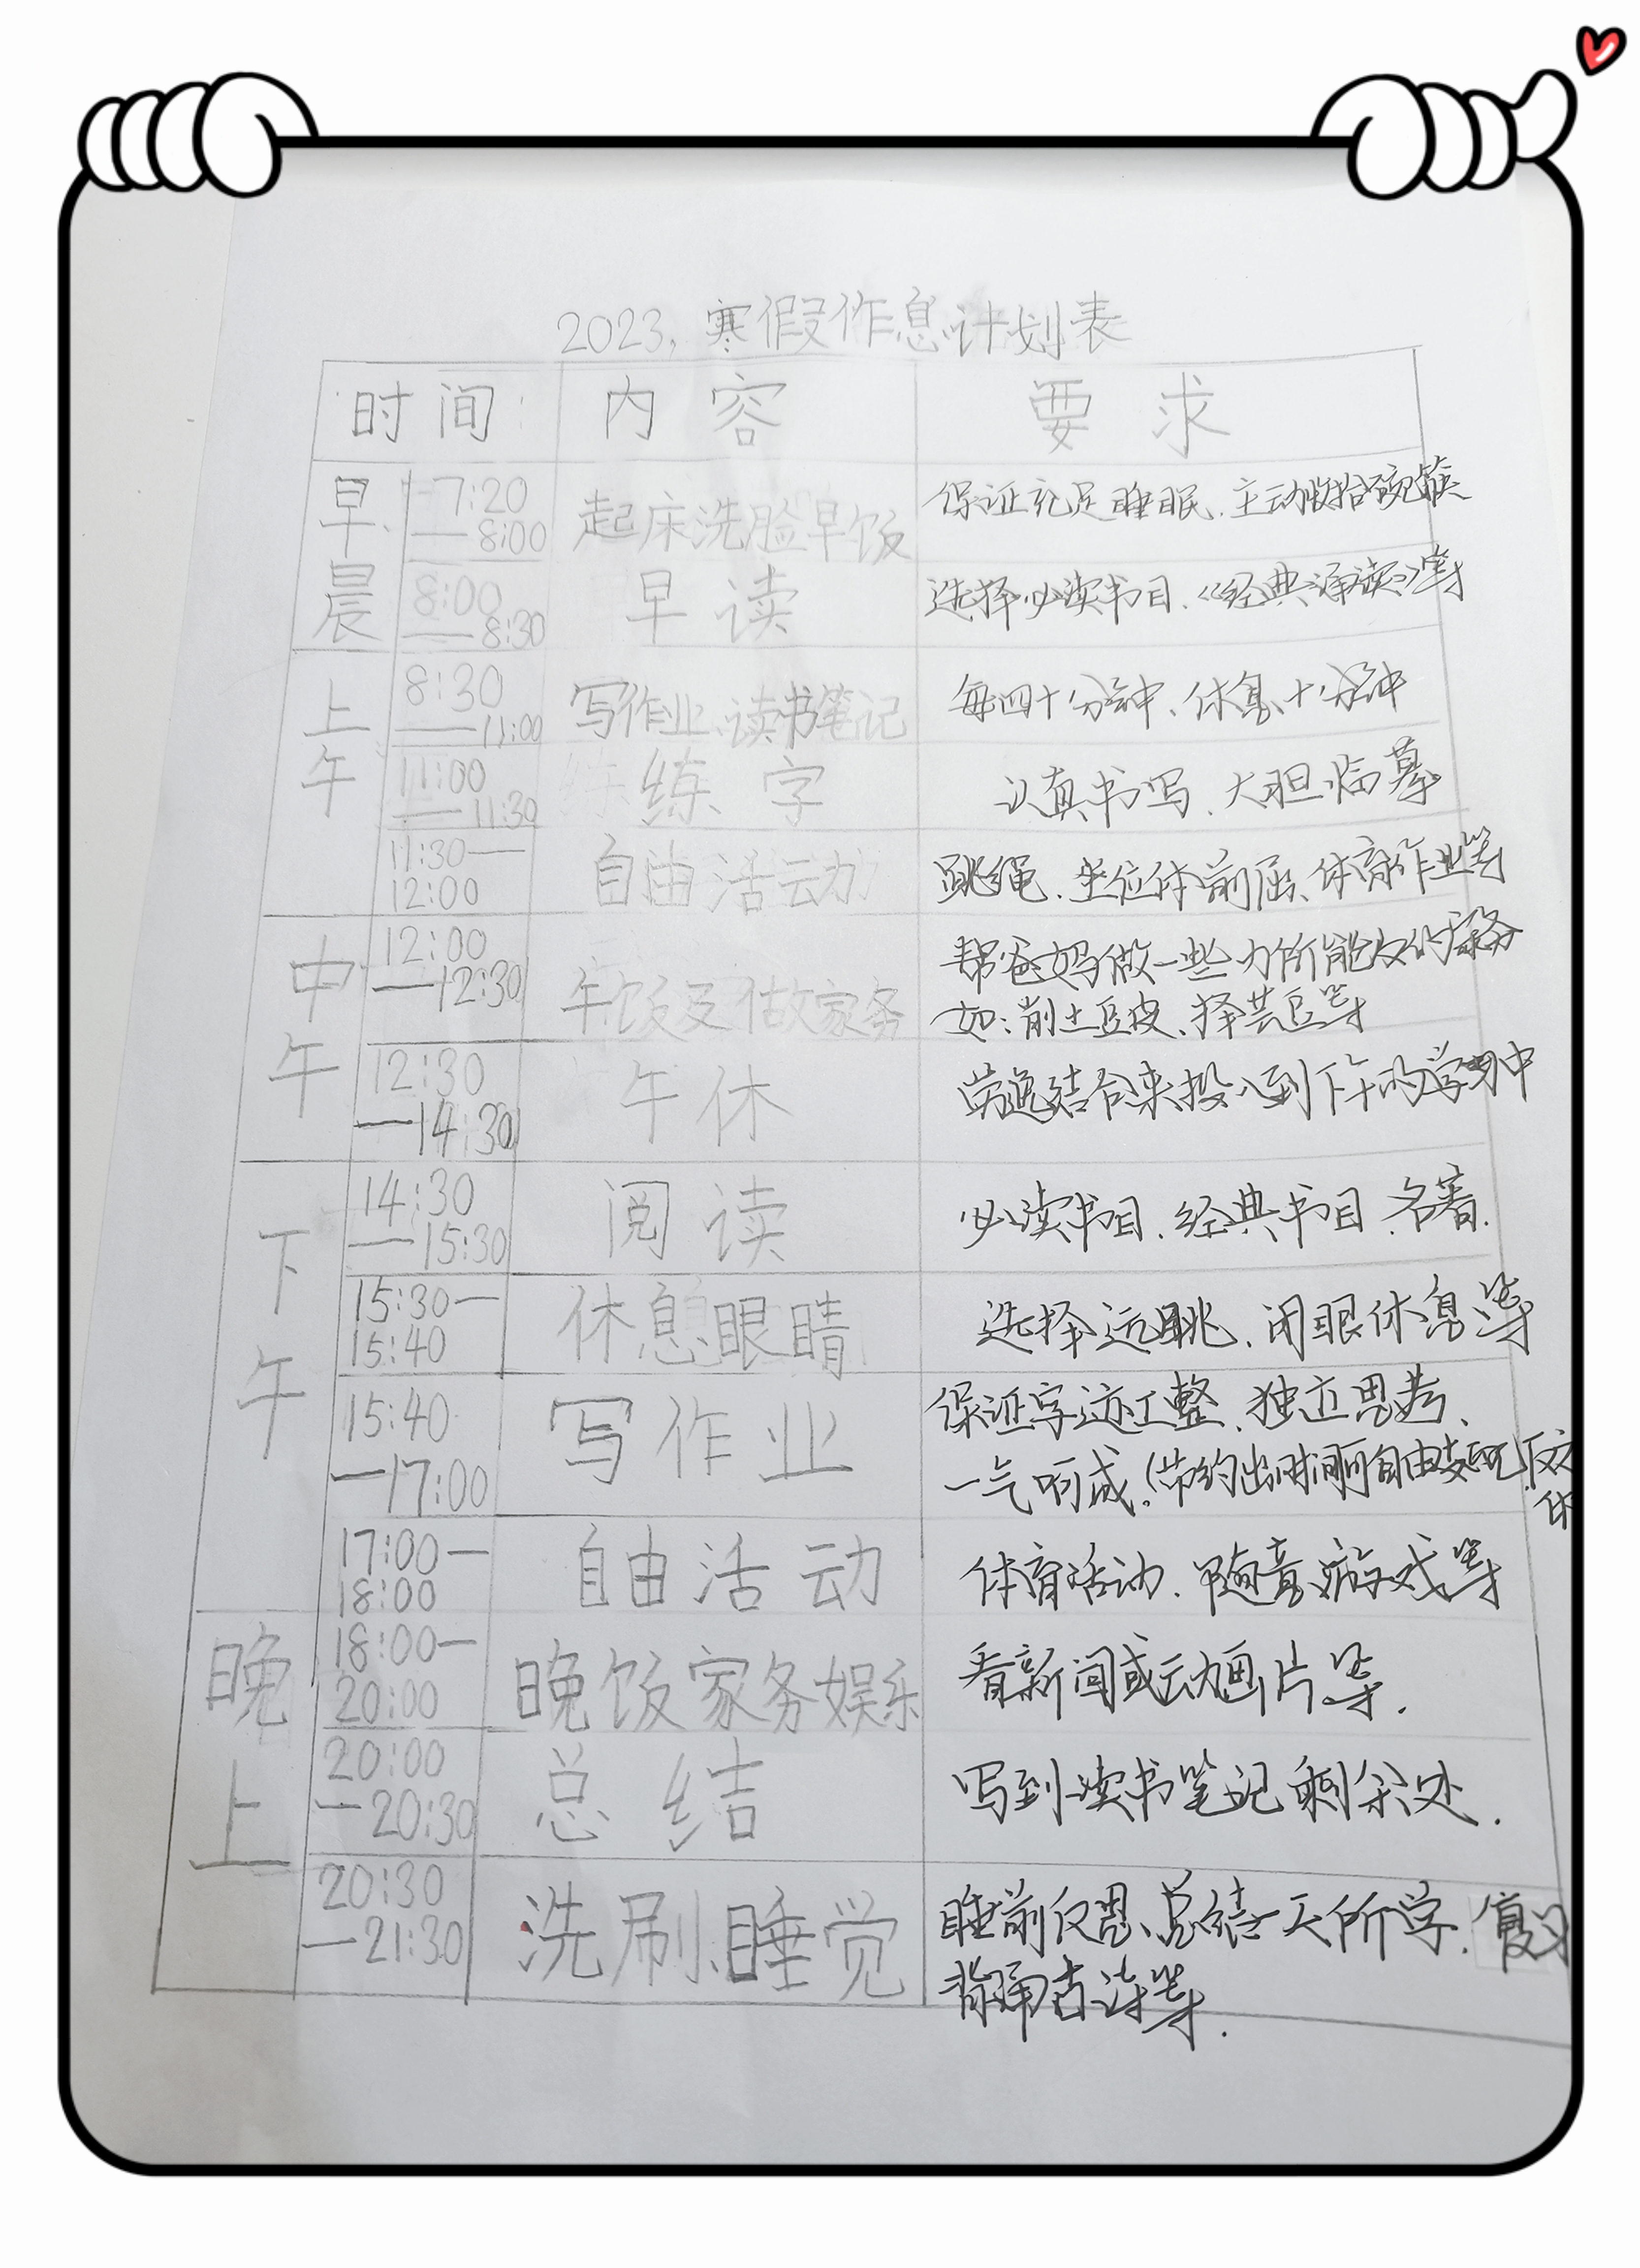 2023,寒假作息计划表
时间 内容 要求
早晨 7:20—8:00 起床洗脸早饭 保证充足睡眠、主动收拾碗筷
8:00—8:30 早读 选择必读书目、《经典诵读》等
上午 8:30—11:00 写作业、读书笔记 每四十分钟、休息十分钟
11:00—11:30 练字 认真书写、大胆临摹
11:30—12:00 自由活动 跳绳、坐位体前屈、体育作业等
中午 12:00—12:30 午饭及做家务 帮爸妈做一些力所能及的家务
如:削土豆皮、择芸豆等
12:30—14:30 午休 劳逸结合来投入到下午的学习中
下午 14:30—15:30 阅读 必读书目、经典书目、名著.
15:30—15:40 休息眼睛 选择远眺、闭眼休息等
15:40—17:00 写作业 保证字迹工整、独立思考、
一气呵成!(节约出时间可自由支配)
17:00—18:00 自由活动 体育活动、随意游戏等
晚上 18:00—20:00 晚饭家务娱乐 看新闻或动画片等.
20:00—20:30 总结 写到读书笔记剩余处.
20:30—21:30 洗刷、睡觉 睡前反思、总结一天所学、复习
背诵古诗等.